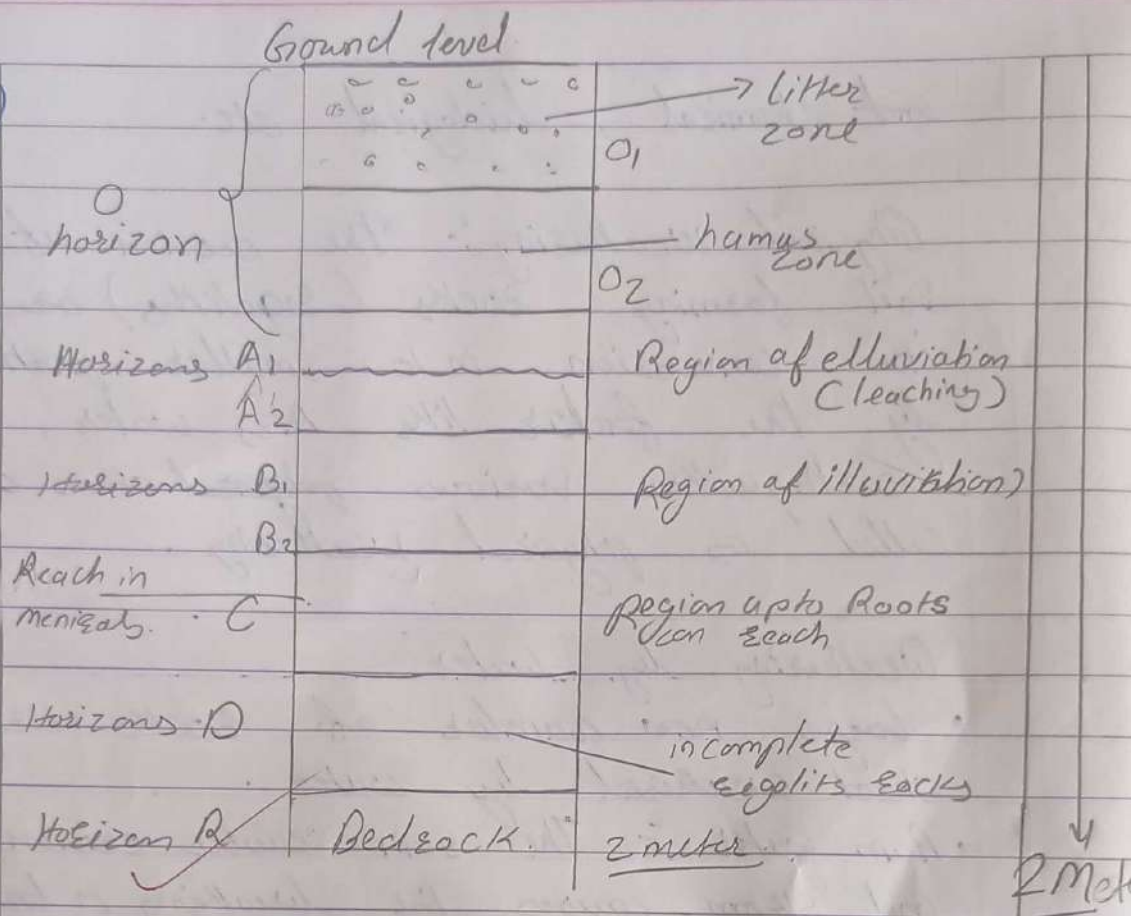 Ground level
litter
zone
O1
O
horizon
humus
zone
O2
Horizons A1
A2
Region of elluviation
(leaching)
Horizons B1
B2
Region of illuvitation)
Reach in
menirals. C
Region upto Roots
can reach
Horizons D
incomplete
rigolits rocks
Horizon R
Bedrock.
2 meter
2 Met